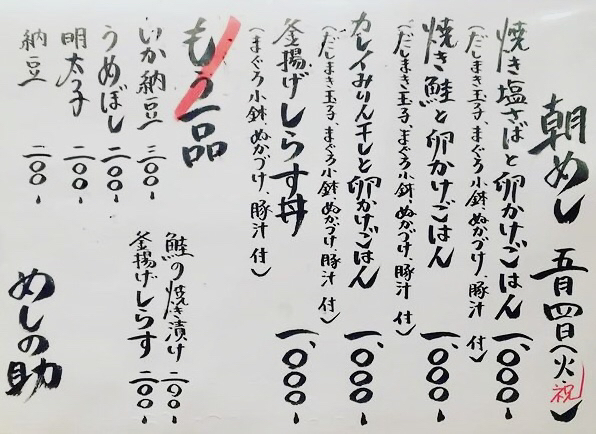 朝めし 五月四日(火祝)
焼き塩さばと卵かけごはん 一、〇〇〇-
(だしまき玉子、まぐろ小鉢、ぬかづけ、豚汁 付)
焼き鮭と卵かけごはん 一、〇〇〇-
(だしまき玉子、まぐろ小鉢、ぬかづけ、豚汁 付)
カレイみりん干しと卵かけごはん 一、〇〇〇-
(だしまき玉子、まぐろ小鉢、ぬかづけ、豚汁 付)
釜揚げしらす丼 一、〇〇〇-
(まぐろ小鉢、ぬかづけ、豚汁 付)
もう一品
いか納豆 三〇〇-
うめぼし 二〇〇-
明太子 二〇〇-
納豆 二〇〇-
鮭の焼き漬け 二〇〇-
釜揚げしらす 二〇〇-
めしの助